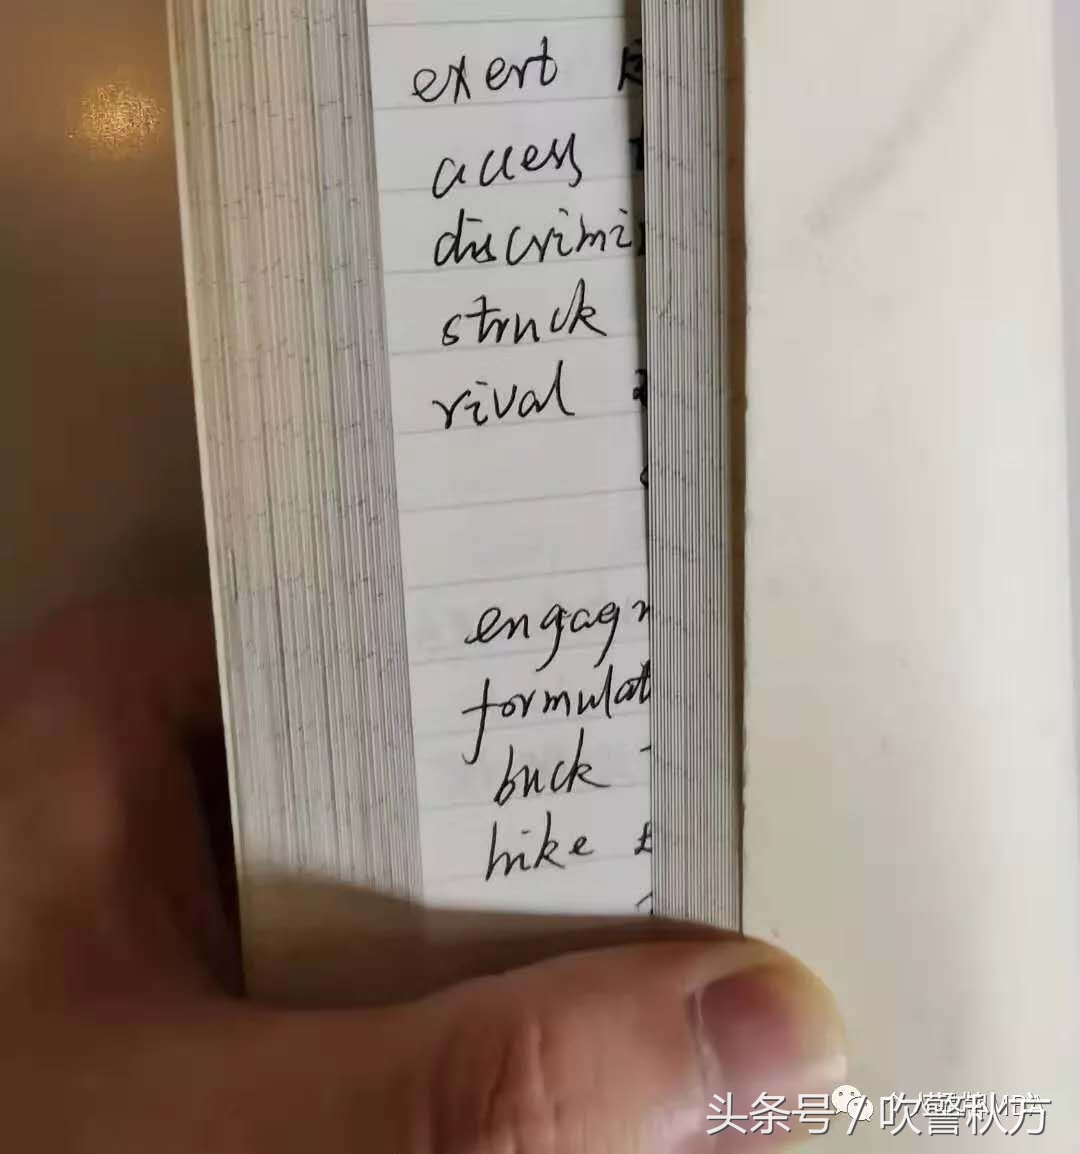 exert
access
discrimi
struck
rival
engag
formulat
buck
hike
头条号 / 吹警秋方